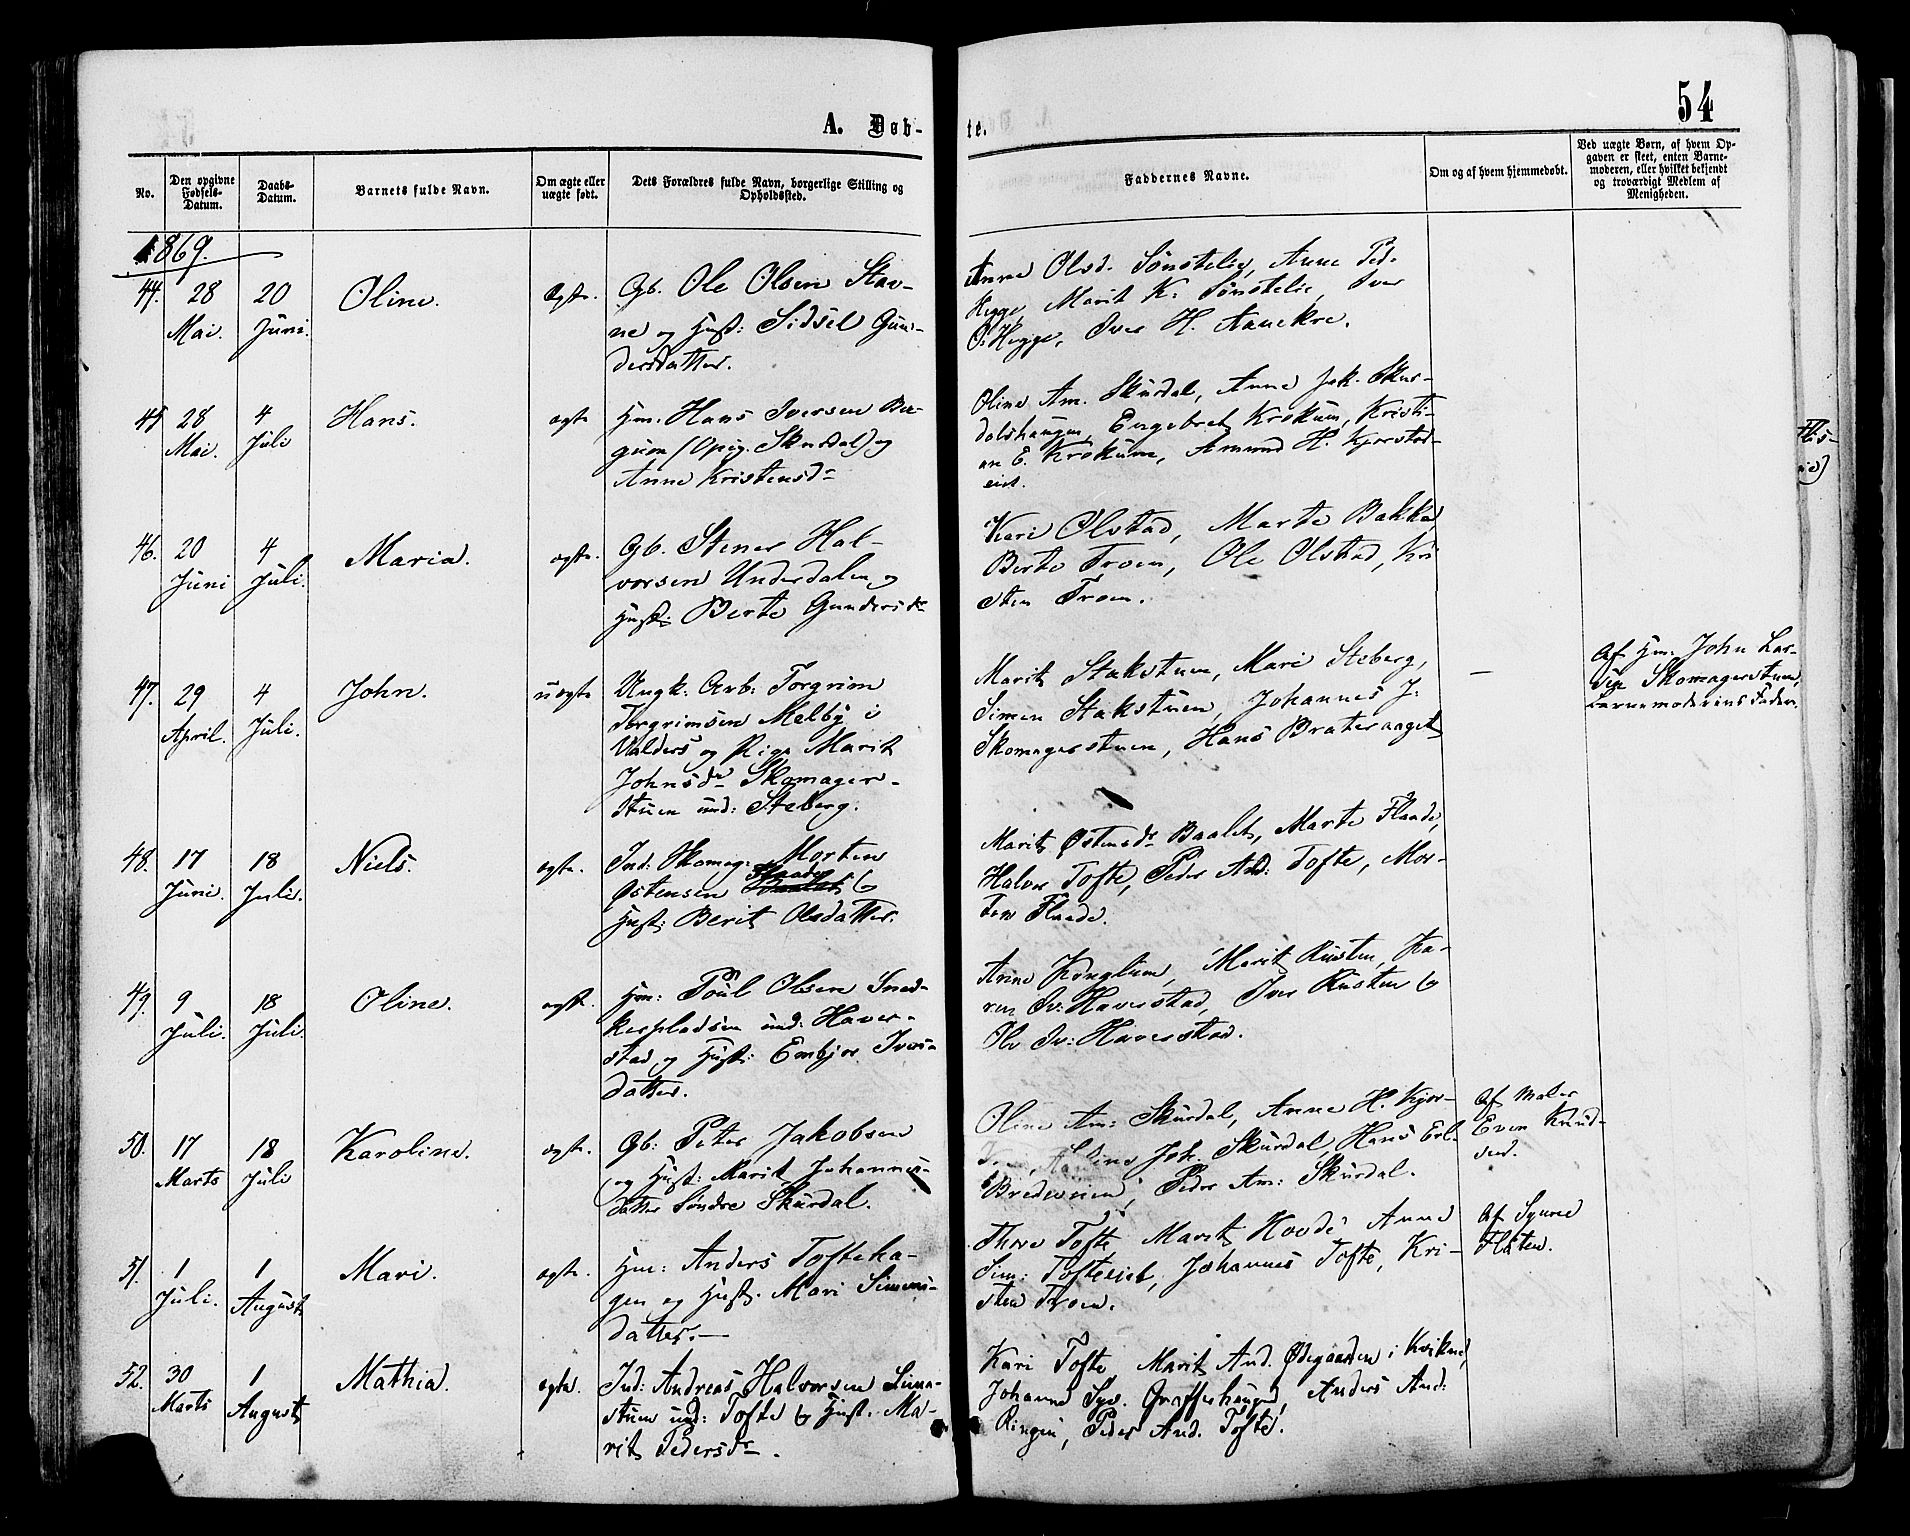 54
A. Døb-
te.
No.
Den opgivne
Fødsels-
Datum.
Daabs-
Datum.
Barnets fulde Navn.
Om ægte eller
uægte født.
Dets Forældres fulde Navn, borgerlige Stilling og
Opholdssted.
Faddernes Navne.
Om og af hvem hjemmedøbt.
Ved uægte Børn, af hvem Op-
gaven er skeet, enten Barne-
moderen, eller hvilket bekjendt
og troværdigt Medlem af
Menigheden.
1869.
44. 28
Mai.
20
Juni.
Oline.
ægte.
Gb. Ole Olsen Stav-
ne og Hust: Sidsel Gun-
dersdatter.
Anne Olsd. Sønstelie, Anne Ped.
Hegge, Marit K. Sønstelie, Iver
O. Hegge, Iver H. Aanekre.
45 28
Mai.
4
Juli
Hans.
ægte
Hm: Hans Iversen Ber-
gum (Opig. Skurdal) og
Anne Kristensdr
Oline Am. Skurdal, Anne Joh. Skur-
dalshaugen, Engebret Krokum, Kristi-
an E. Krokum, Amund H. Kjorstad-
eiet.
46. 20
Juni
4
Juli.
Maria.
ægte.
Gb. Stener Hal-
vorsen Underdalen og
Hust: Berte Gundersdr
Kari Olstad, Marte Bakke,
Berte Troen, Ole Olstad, Kri
sten Troen.
47. 29
April.
4
Juli.
John.
uægte
Ungk: Arb: Torgrim
Torgrimsen Melby i
Valders og Pige Marit
Johnsdr Skomager-
stuen und: Steberg.
Marit Stakstuen, Mari Steberg,
Simen Stakstuen, Johannes J.
Skomagerstuen, Hans Brateraaget
—
Af Hm: John Lar-
sen Skomagerstuen,
Barnemoderens Fader.
48. 17
Juni.
18
Juli.
Niels.
ægte.
Ind: Skomag: Morten
Østensen Flaade &
Hust: Berit Olsdatter.
Marit Østensdr Baalet, Marte Flaade,
Halvor Tofte, Peder And: Tofte, Mor-
ten Flaade.
49. 9
Juli.
18
Juli.
Oline.
ægte.
Hm: Poul Olsen Sned-
kerpladsen und: Haver-
stad og Hust: Embjør Ivers-
datter.
Anne Konglum, Marit Rusten, Ka-
ren Iv: Haverstad, Iver Rusten &
Ole Iv: Haverstad.
50. 17
Marts
18
Juli
Karoline.
ægte.
Gb: Peter Jakobsen
og Hust: Marit Johannes-
datter Søndre Skurdal.
Oline Am: Skurdal, Anne H. Kjor-
Joh. Skurdal, Hans Erl.
Bredevien, Peder Am: Skurdal.
Af Maler
Even Knud-
sen.
51. 1
Juli.
1
August
Mari.
ægte.
Hm: Anders Tofteha-
gen og Hust. Mari Simens-
datter.—
Thore Tofte Marit Hovde Anne
Sim: Tofteeiet, Johannes Tofte, Kri-
sten Troen.
Af Synne
Flåten.
52. 30
Marts
1
August
Mathia.
ægte.
Ind: Andreas Halvorsen Sima-
stuen und: Tofte & Hust. Ma-
rit Pedersdr.
Kari Tofte Marit And. Ødegaarden i Kvikne,
Johanne Syv. Graffenhaugen, Anders And:
Ringen, Peder And. Tofte.